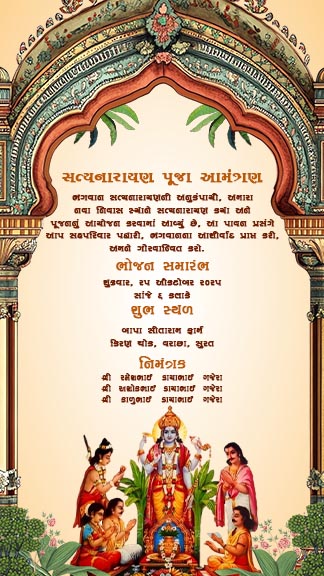 સત્યનારાયણ પૂજા આમંત્રણ
ભગવાન સત્યનારાયણની અનુકંપાથી, અમારા
નવા નિવાસ સ્થાને સત્યનારાયણ કથા અને
પૂજનનું આયોજન કરવામાં આવ્યું છે. આ પાવન પ્રસંગે
આપ સહપરિવાર પધારી, ભગવાનના આશીર્વાદ પ્રાપ્ત કરી,
અમને ગૌરવાન્વિત કરો.
ભોજન સમારંભ
શુક્રવાર, ૨૫ ઓક્ટોબર ૨૦૨૫
સાંજે ૬ કલાકે
શુભ સ્થળ
બાપા સીતારામ ફાર્મ
કિરણ ચોક, વરાછા, સુરત
નિમંત્રક
શ્રી રમેશભાઈ ડાયાભાઈ ગજેરા
શ્રી અશોકભાઈ ડાયાભાઈ ગજેરા
શ્રી કાળુભાઈ ડાયાભાઈ ગજેરા